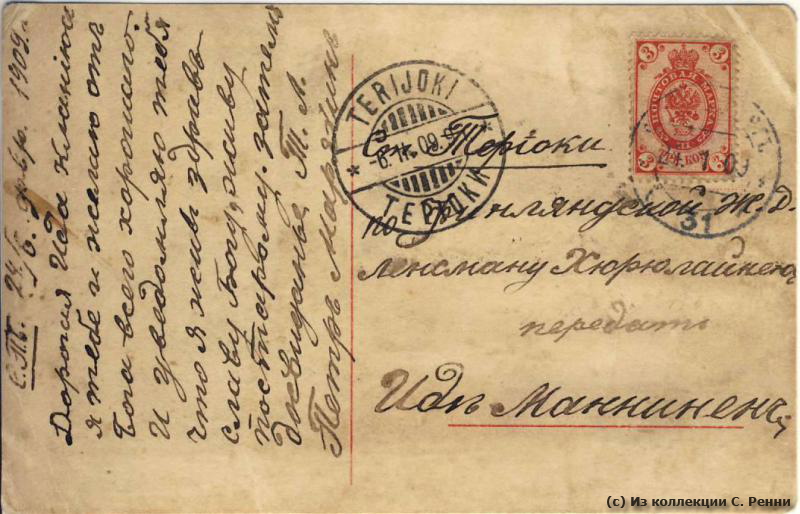 С.П.Б. 24 I/6 февр. 1909 г.
Дорогия Ида кланіюсь
я тебе и желаю отъ
Бога всего хорошаго.
И уведомляю тебя
что я живъ здравъ
славу Богу, живу
постарому. затемъ
досвиданье Т. Л.
Петръ Марткинъ
TERIJOKI
6. II. 09.
ТЕРІОКИ
Ст. Теріоки
по Финляндской Ж. Д.
Ленсману Хюрюлайнену
передать
Идѣ Маннинень
3 3
ПОЧТОВАЯ МАРКА
3 КОП 3
24. 1 09
31
(с) Из коллекции С. Ренни